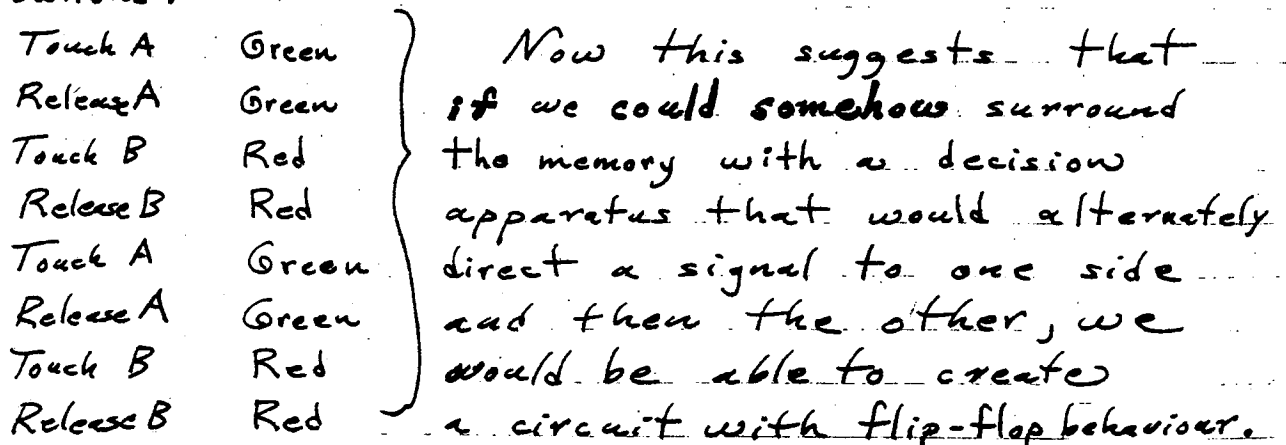 Touch A Green
Release A Green
Touch B Red
Release B Red
Touch A Green
Release A Green
Touch B Red
Release B Red
Now this suggests that
if we could somehow surround
the memory with a decision
apparatus that would alternately
direct a signal to one side
and then the other, we
would be able to create
a circuit with flip-flop behaviour.